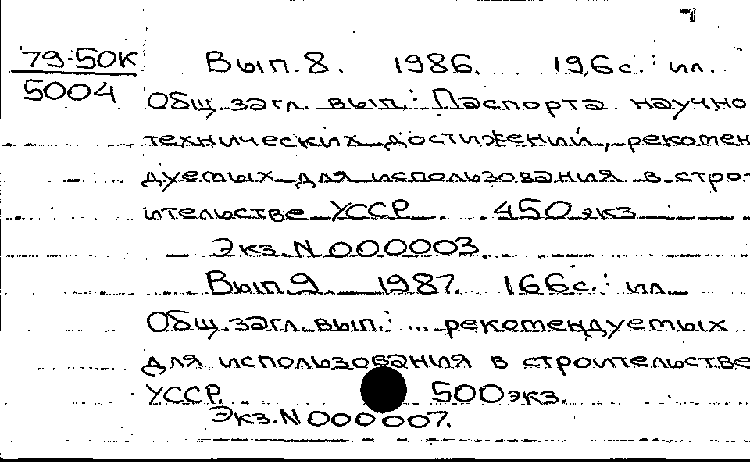 79-50К
5004
Вып. 8. 1986. 196 с.: ил.
Общ. загл. вып.: Паспорта научно
технических достижений, рекомен
дуемых для использования в стро-
ительстве УССР 450 экз
Экз. N 000003.
Вып. 9 1987. 166 с.: ил
Общ. загл. вып.: ... рекомендуемых
для использования в строительстве
УССР. 500 экз.
Экз. N 000007.